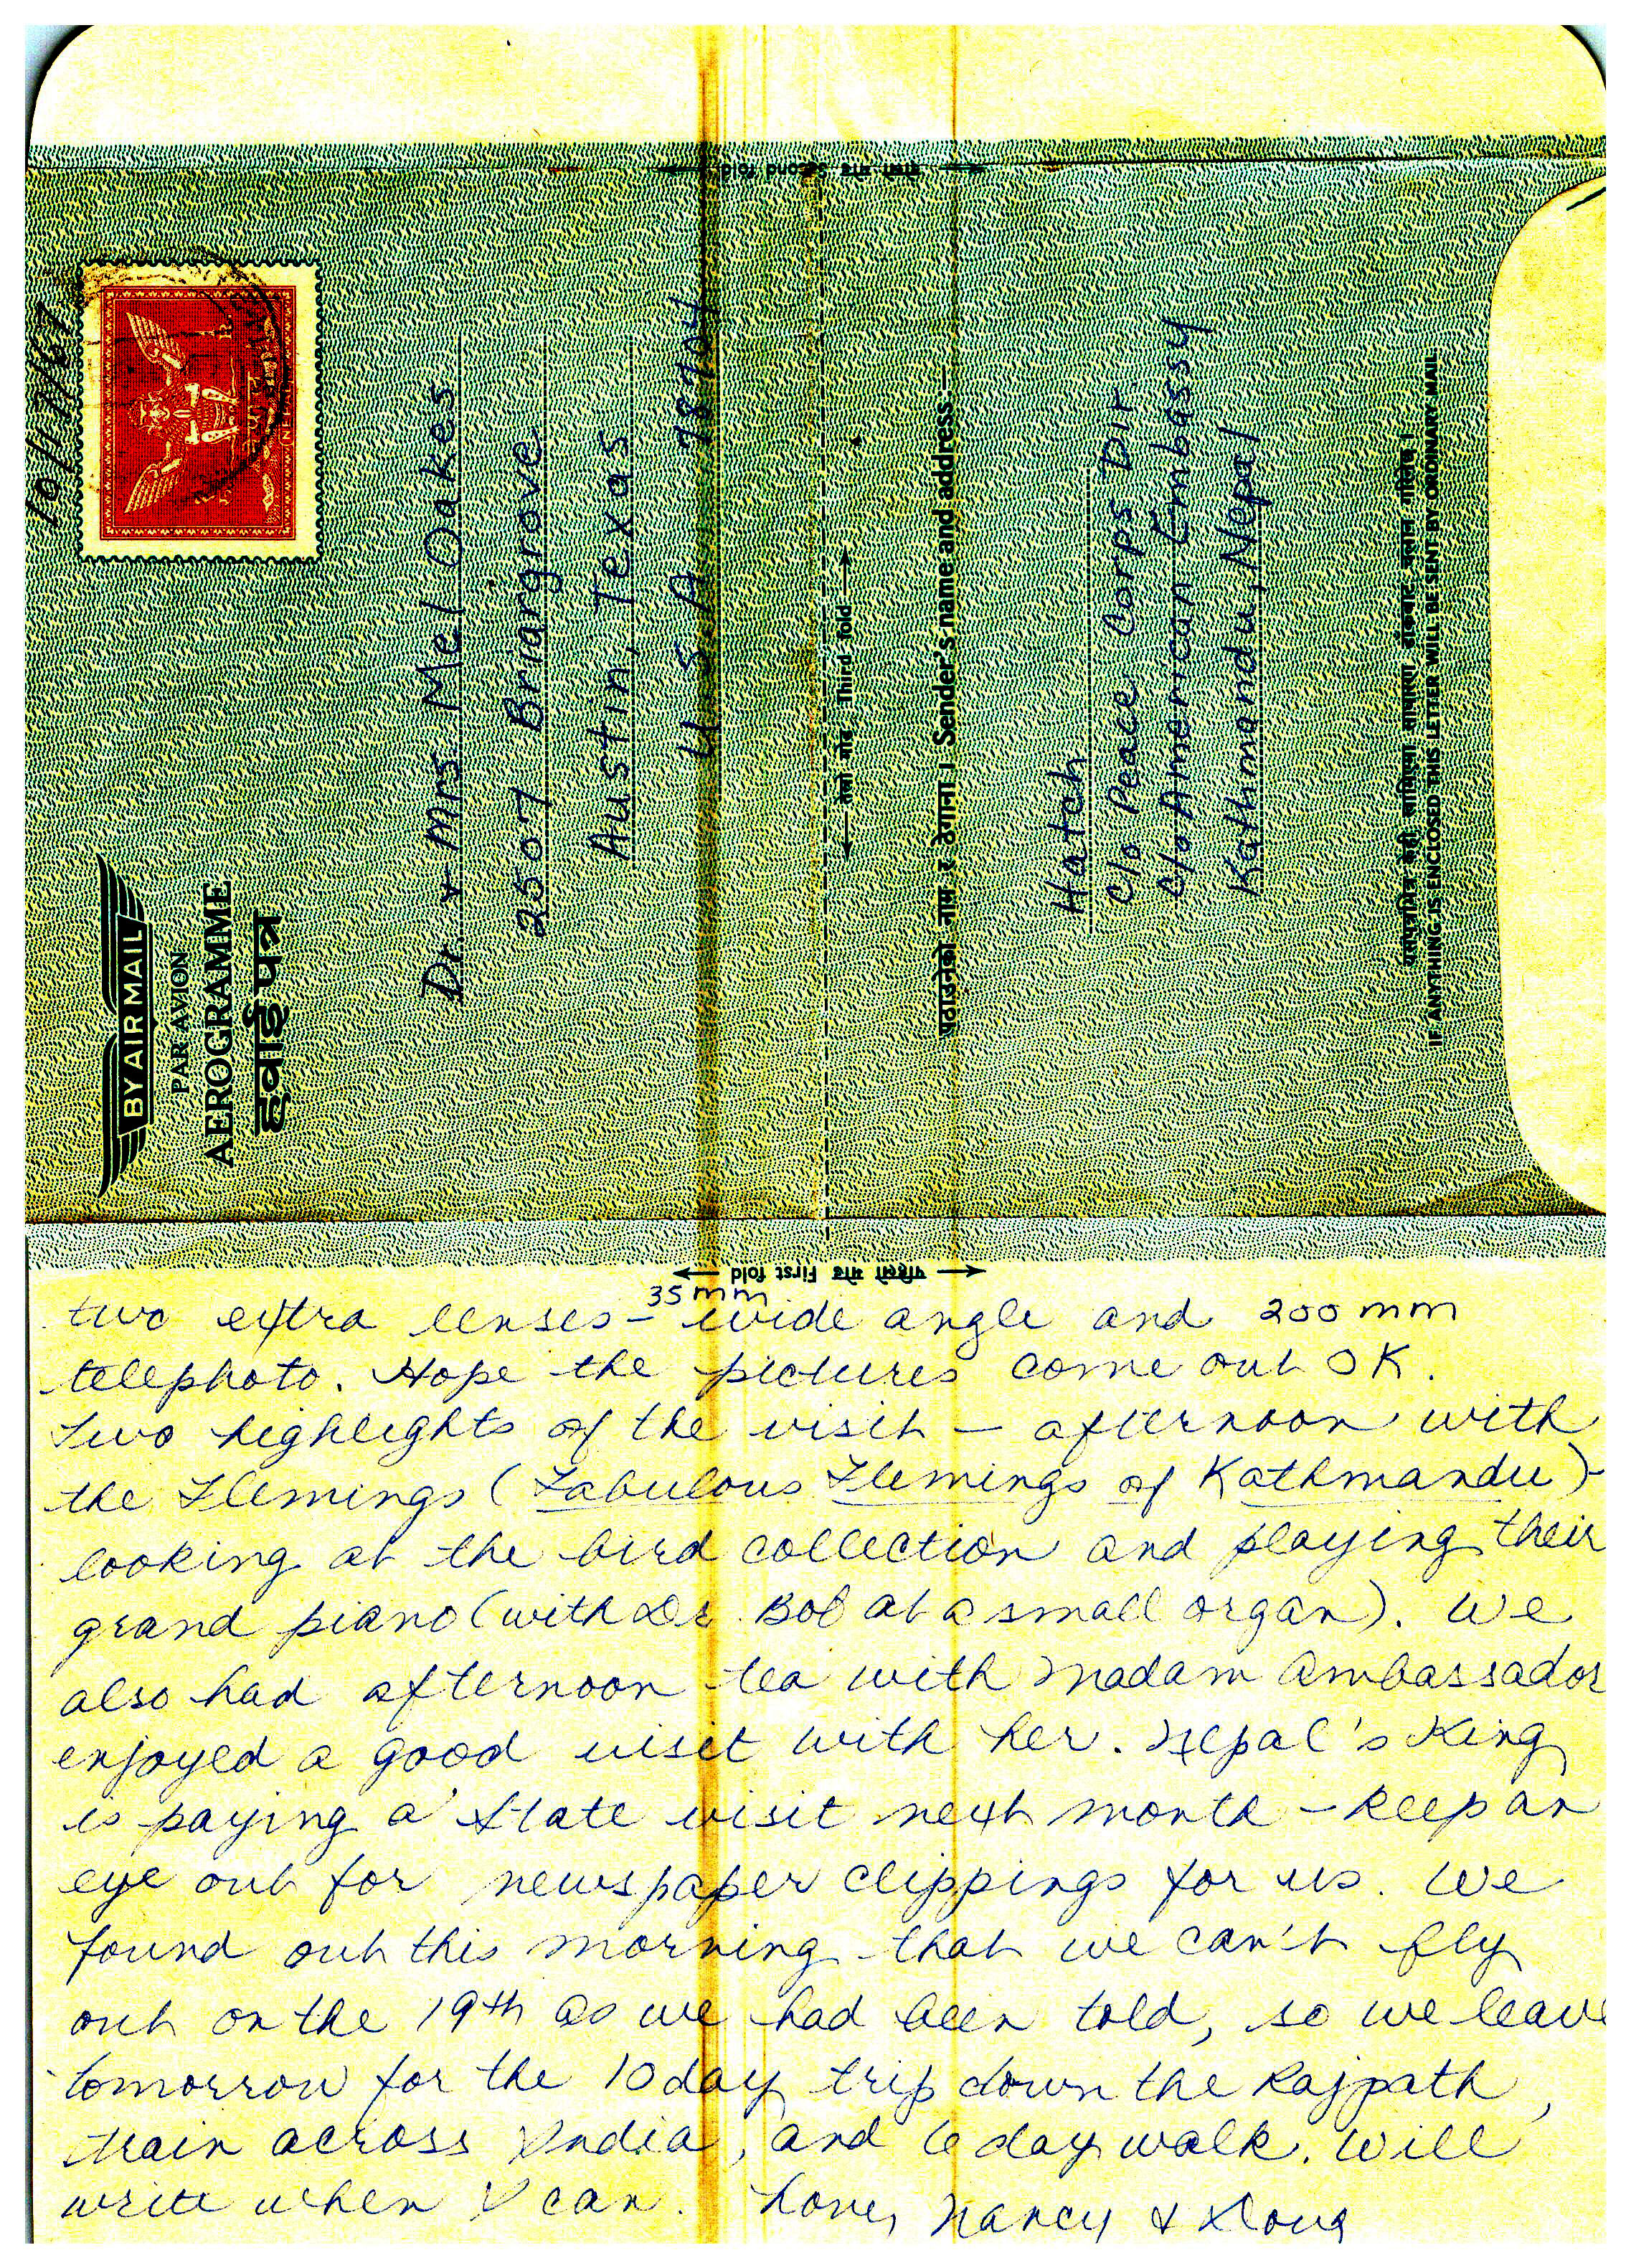 दोस्रो मोड Second fold
10/17/67
BY AIR MAIL
PAR AVION
AEROGRAMME
हवाईपत्र
Dr. & Mrs. Mel Oakes
2507 Briargrove
Austin, Texas
U.S.A. 78704
तेस्रो मोड Third fold
पठाउनेको नाम र ठेगाना । Sender's name and address:—
Hatch
c/o Peace Corps Dir
c/o American Embassy
Kathmandu, Nepal
IF ANYTHING IS ENCLOSED THIS LETTER WILL BE SENT BY ORDINARY MAIL
पहिलो मोड First fold
two extra lenses – 35 mm wide angle and 200 mm
telephoto. Hope the pictures come out OK.
Two highlights of the visit – afternoon with
the Flemings (Fabulous Flemings of Kathmandu) –
looking at the bird collection and playing their
grand piano (with Dr. Bob at a small organ). We
also had afternoon tea with Madam Ambassador
enjoyed a good visit with her. Nepal's King
is paying a state visit next month – keep an
eye out for newspaper clippings for us. We
found out this morning that we can't fly
out on the 19th as we had been told, so we leave
tomorrow for the 10 day trip down the Rajpath,
train across India, and 6 day walk. Will
write when I can. Love, Nancy & Doug